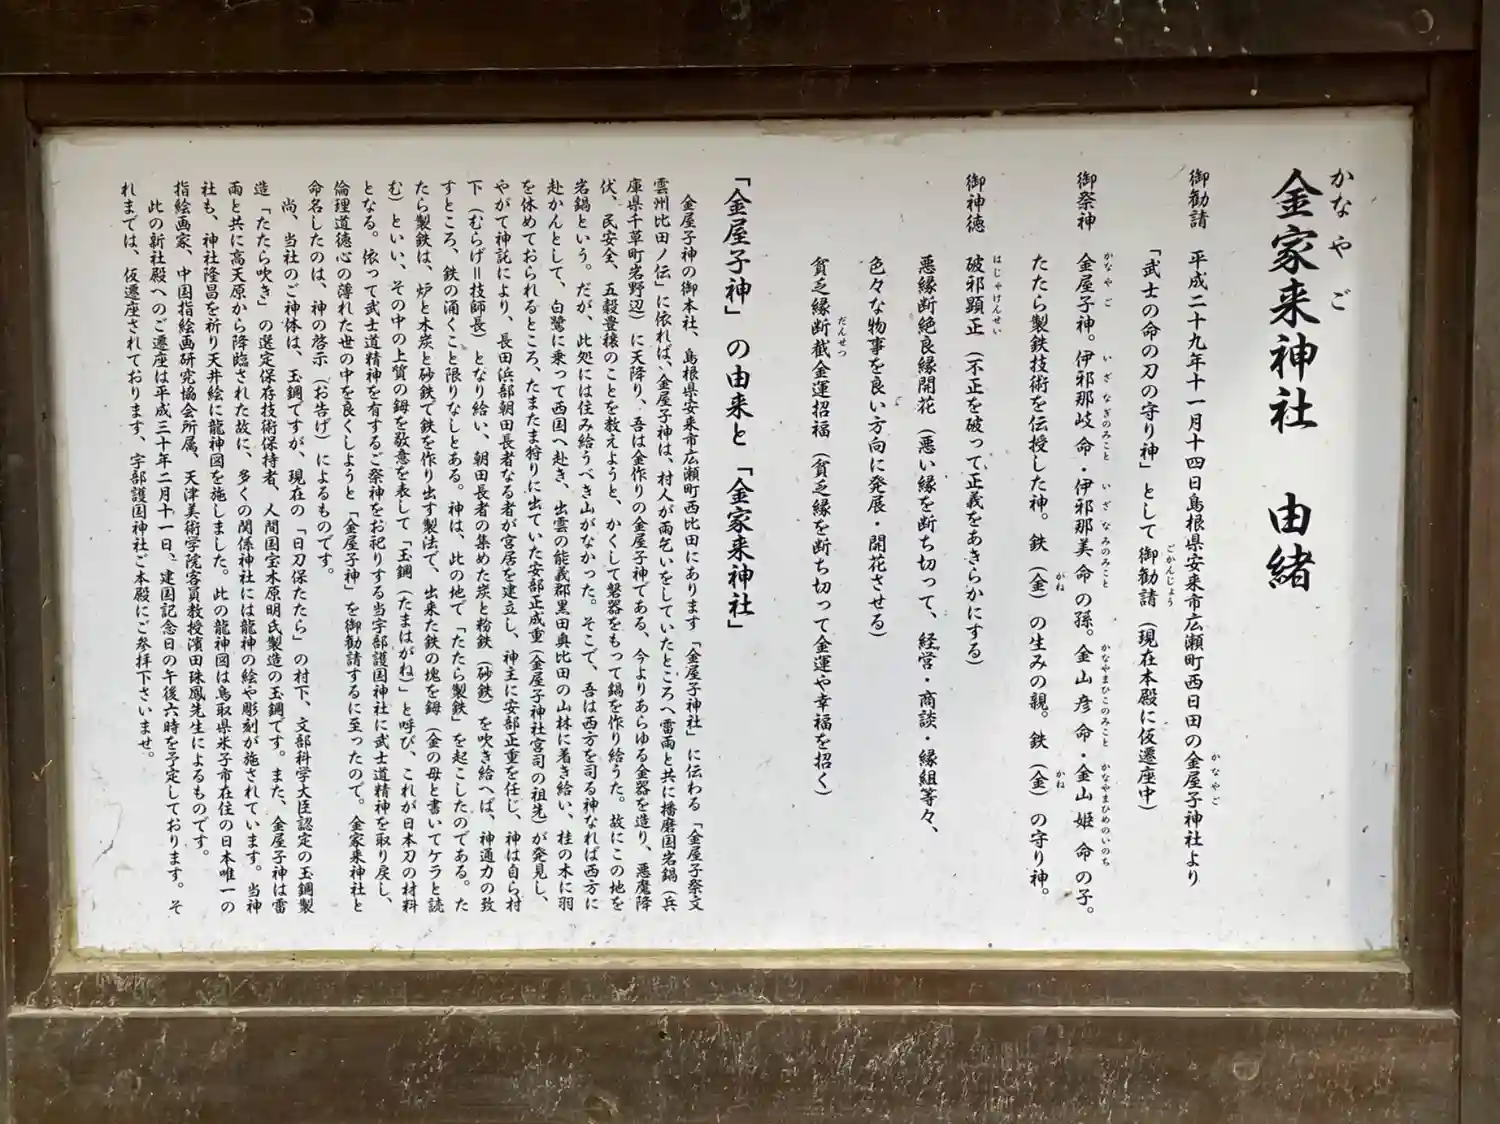 金家来神社　由緒
かなやご
御勧請　平成二十九年十一月十四日島根県安来市広瀬町西日田の金屋子神社より
かなやご
「武士の命の刀の守り神」として御勧請（現在本殿に仮遷座中）
ごかんじょう
御祭神　金屋子神。伊邪那岐命・伊邪那美命の孫。金山彦命・金山姫命の子。
かなやご　いざなぎのみこと　いざなみのみこと　かなやまひこのみこと　かなやまひめのいのち
たたら製鉄技術を伝授した神。鉄（金）の生みの親。鉄（金）の守り神。
がね　かね
御神徳　破邪顕正（不正を破って正義をあきらかにする）
はじゃけんせい
悪縁断絶良縁開花（悪い縁を断ち切って、経営・商談・縁組等々、
色々な物事を良い方向に発展・開花させる）
貧乏縁断截金運招福（貧乏縁を断ち切って金運や幸福を招く）
だんせつ
「金屋子神」の由来と「金家来神社」
金屋子神の御本社、島根県安来市広瀬町西比田にあります「金屋子神社」に伝わる「金屋子祭文
雲州比田ノ伝」に依れば、金屋子神は、村人が雨乞いをしていたところへ雷雨と共に播磨国岩鍋（兵
庫県千草町岩野辺）に天降り、吾は金作りの金屋子神である、今よりあらゆる金器を造り、悪魔降
伏、民安全、五穀豊穣のことを教えようと、かくして磐器をもって鍋を作り給うた。故にこの地を
岩鍋という。だが、此処には住み給うべき山がなかった。そこで、吾は西方を司る神なれば西方に
赴かんとして、白鷺に乗って西国へ赴き、出雲の能義郡黒田奥比田の山林に着き給い、桂の木に羽
を休めておられるところ、たまたま狩りに出ていた安部正成重（金屋子神社宮司の祖先）が発見し、
やがて神託により、長田浜部朝田長者なる者が宮居を建立し、神主に安部正重を任じ、神は自ら村
下（むらげ＝技師長）となり給い、朝田長者の集めた炭と粉鉄（砂鉄）を吹き給へば、神通力の致
すところ、鉄の涌くこと限りなしとある。神は、此の地で「たたら製鉄」を起こしたのである。た
たら製鉄は、炉と木炭と砂鉄で鉄を作り出す製法で、出来た鉄の塊を鉧（金の母と書いてケラと読
む）といい、その中の上質の鉧を敬意を表して「玉鋼（たまはがね）」と呼び、これが日本刀の材料
となる。依って武士道精神を有するご祭神をお祀りする当宇部護国神社に武士道精神を取り戻し、
倫理道徳心の薄れた世の中を良くしようと「金屋子神」を御勧請するに至ったので。金家来神社と
命名したのは、神の啓示（お告げ）によるものです。
尚、当社のご神体は、玉鋼ですが、現在の「日刀保たたら」の村下、文部科学大臣認定の玉鋼製
造「たたら吹き」の選定保存技術保持者、人間国宝木原明氏製造の玉鋼です。また、金屋子神は雷
雨と共に高天原から降臨された故に、多くの関係神社には龍神の絵や彫刻が施されています。当神
社も、神社隆昌を祈り天井絵に龍神図を施しました。此の龍神図は鳥取県米子市在住の日本唯一の
指絵画家、中国指絵画研究協会所属、天津美術学院客員教授濱田珠鳳先生によるものです。
此の新社殿へのご遷座は平成三十年二月十一日、建国記念日の午後六時を予定しております。そ
れまでは、仮遷座されております、宇部護国神社ご本殿にご参拝下さいませ。